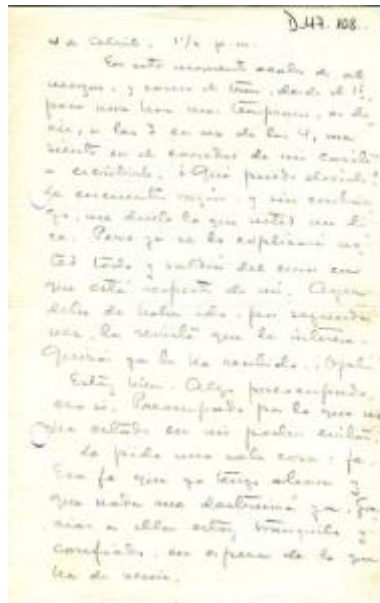 D.47.108.
4 de Abril. 1½ p.m.
En este momento acabo de al
morzar, y como el tren, desde el 1º,
pasa una hora mas temprano, es de
cir, a las 3 en vez de las 4, me
siento en el corredor de mi casita
a escribirle. ¿Qué puedo decirle?
Le encuentro razón, y sin embar
go, me duele lo que usted me di
ce. Pero ya se lo explicaré us
ted todo y saldrá del error en
que está respecto de mí. Ayer
debe de haber ido, por segunda
vez, la revista que le interesa.
Quizá ya la ha recibido. ¡Ojalá!
Estoy bien. Algo preocupado,
eso sí. Preocupado por lo que no
ha estado en mi poder evitar.
Le pido una sola cosa: fe.
Esa fe que yo tengo ahora y
que nada me destruirá ya. Gra
cias a ella estoy tranquilo y
confiado, en espera de lo que
ha de venir.